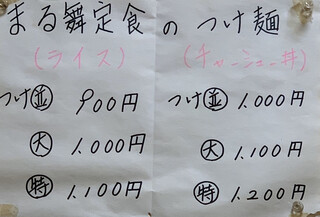 まる舞定食のつけ麺
(ライス) (チャーシュー丼)
つけ並 900円 つけ並 1.000円
大 1.000円 大 1.100円
特 1.100円 特 1.200円